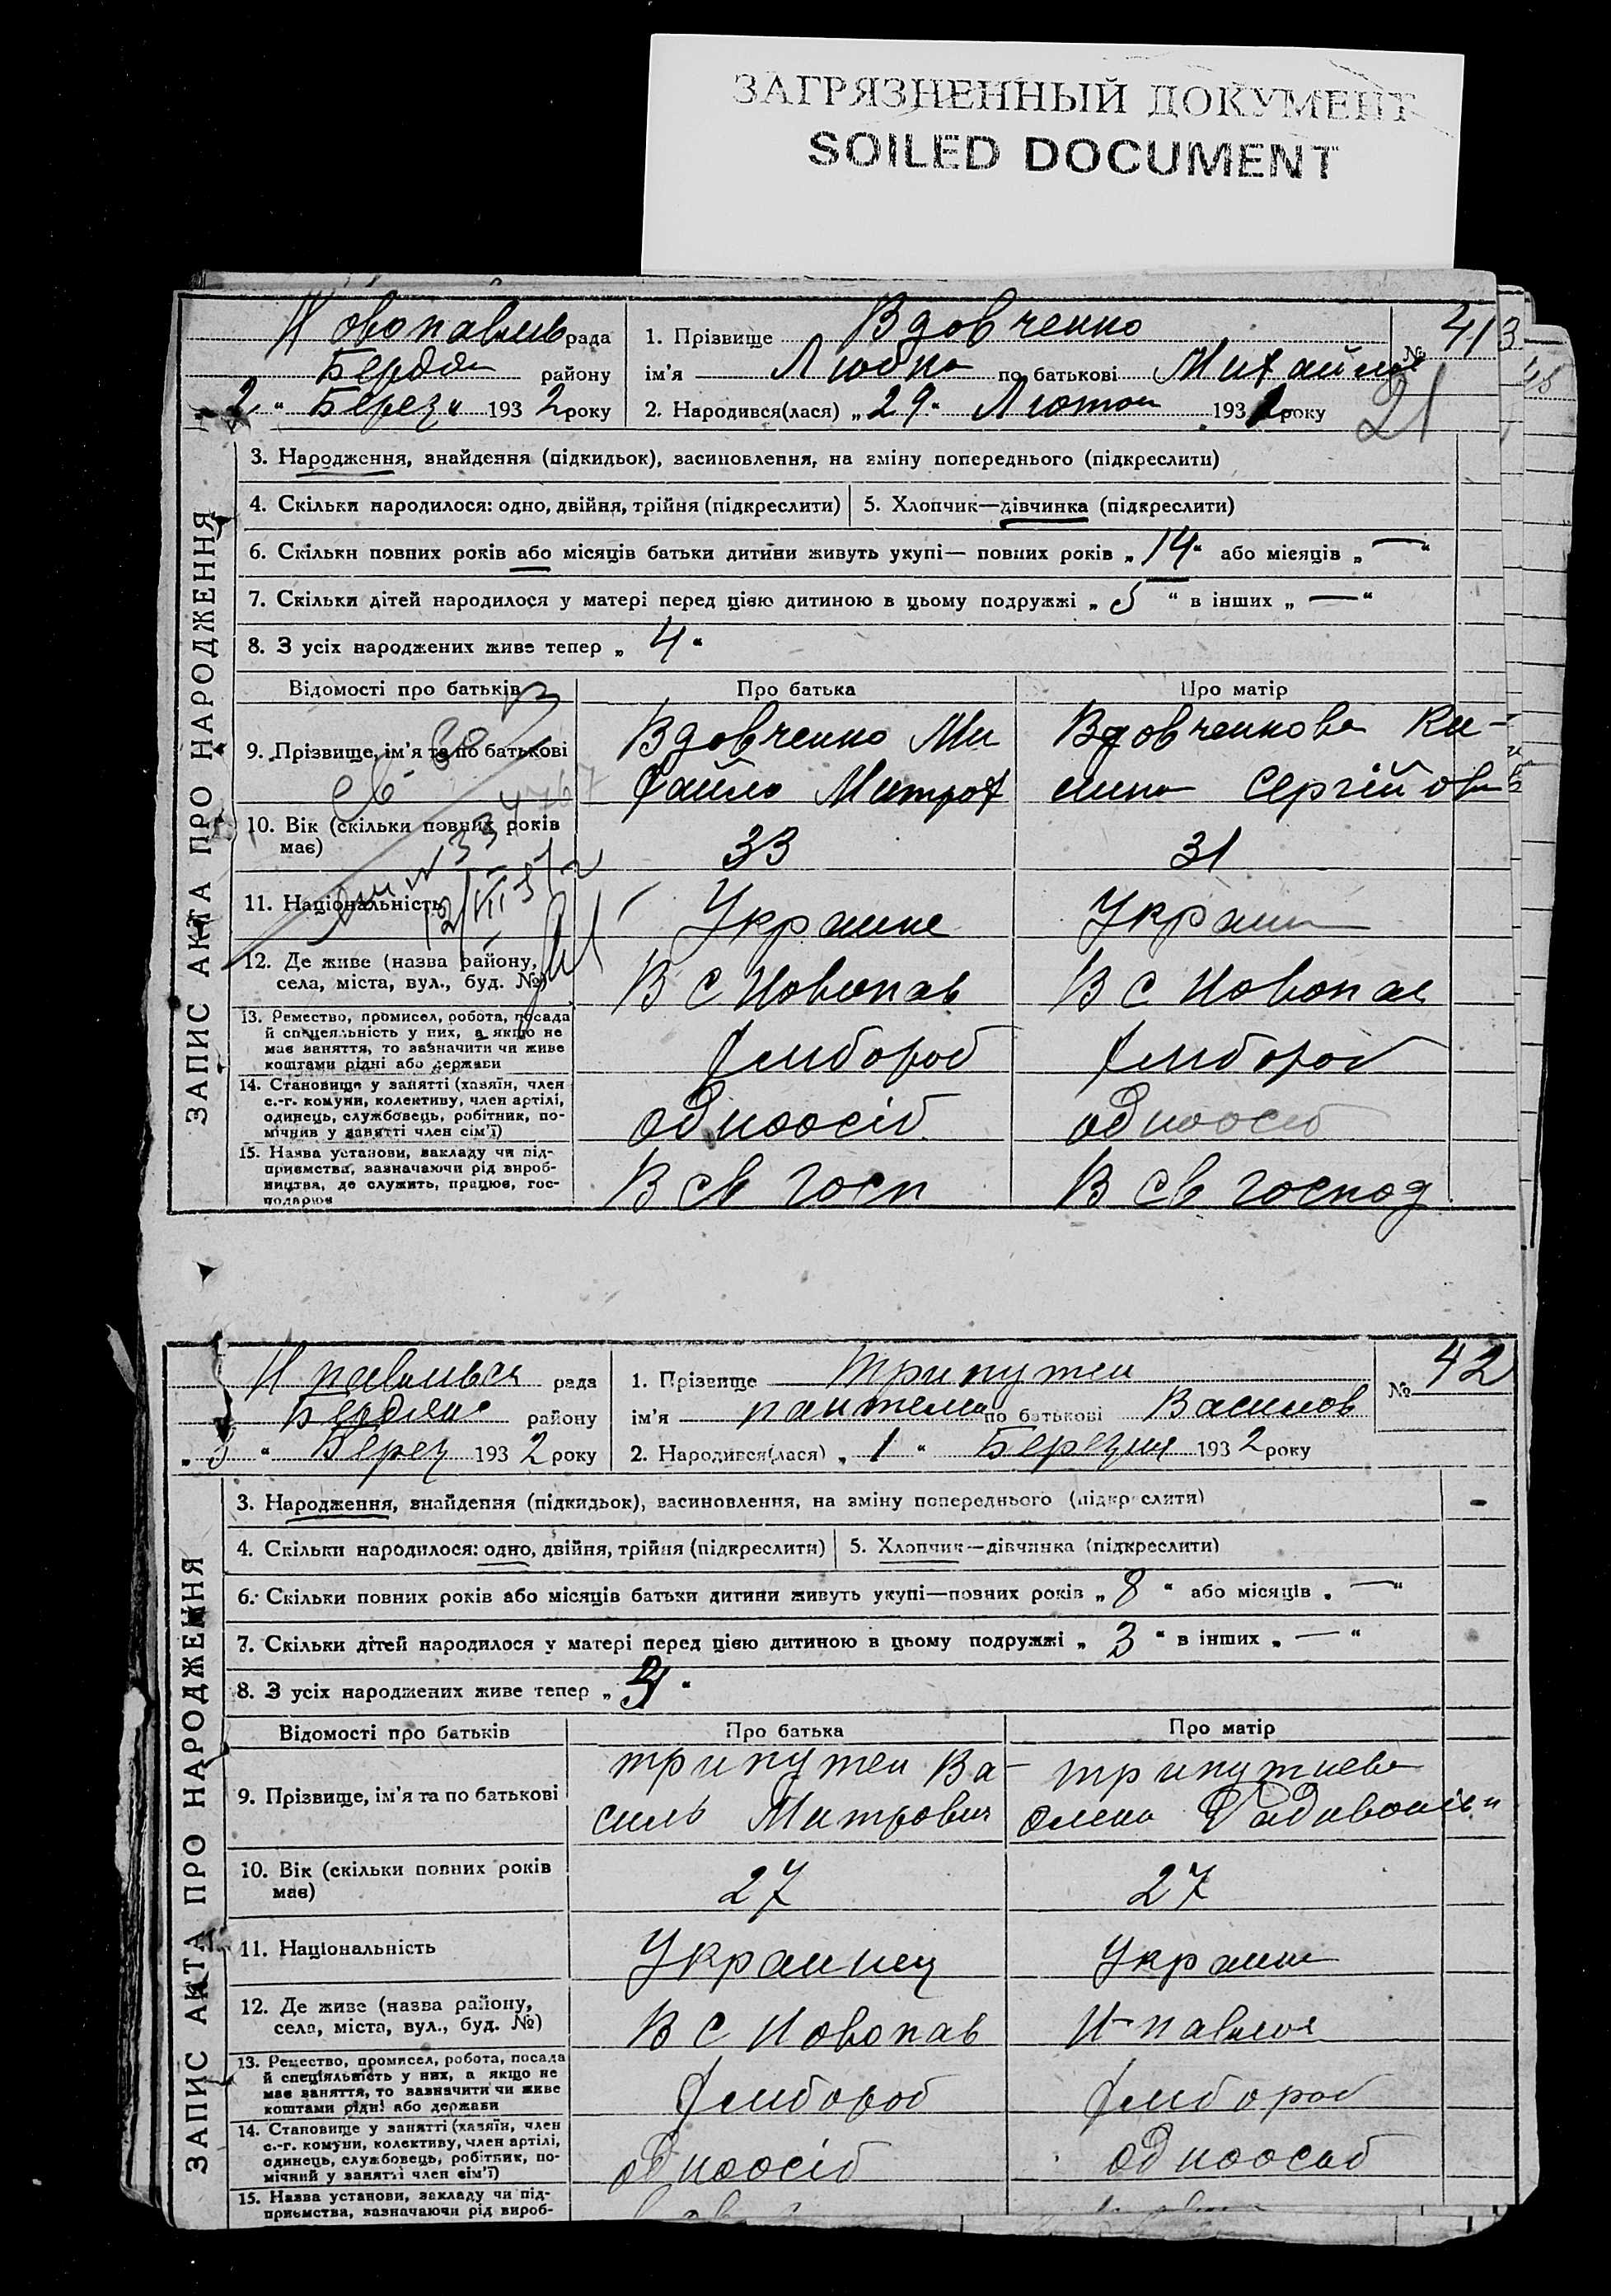 ЗАГРЯЗНЕННЫЙ ДОКУМЕНТ
SOILED DOCUMENT
рада
1. Прізвище Вдовченко
№ 41
Бердян району
ім'я Любко по батькові Михайлов
„2“ Берез 1932 року
2. Народився(лася) „29“ Лютом 1932 року
21
ЗАПИС АКТА ПРО НАРОДЖЕННЯ
3. Народження, знайдення (підкидьок), засиновлення, на зміну попереднього (підкреслити)
4. Скільки народилося: одно, двійня, трійня (підкреслити)
5. Хлопчик—дівчинка (підкреслити)
6. Скільки повних років або місяців батьки дитини живуть укупі— повних років „14“ або місяців „—“
7. Скільки дітей народилося у матері перед цією дитиною в цьому подружжі „5“ в інших „—“
8. З усіх народжених живе тепер „4“
Відомості про батьків
Про батька
Про матір
9. Прізвище, ім'я та по батькові
Вдовченко Ми
Вдовченкова Ки-
хайло Митроф
лина Сергійовн
10. Вік (скільки повних років
має)
33
31
11. Національність
Украине
Украин
12. Де живе (назва району,
села, міста, вул., буд. №)
В С Новопав
В С Новопав
13. Ремество, промисел, робота, посада
й спеціяльність у них, а якщо не
має заняття, то зазначити чи живе
коштами рідні або держави
хлибороб
хлибороб
14. Становище у занятті (хазяїн, член
с.-г. комуни, колективу, член артілі,
одинець, службовець, робітник, по-
мічник у занятті член сім'ї)
одноосіб
одноосіб
15. Назва установи, закладу чи під-
приємства, зазначаючи рід вироб-
ництва, де служить, працює, гос-
подарює
В св госп
В св господ
Н павливск рада
1. Прізвище Трипутен
№ 42
Бердянс району
ім'я пантели по батькові Василов
„3“ Берез 1932 року
2. Народився(лася) „1“ Березня 1932 року
ЗАПИС АКТА ПРО НАРОДЖЕННЯ
3. Народження, знайдення (підкидьок), засиновлення, на зміну попереднього (підкреслити)
4. Скільки народилося: одно, двійня, трійня (підкреслити)
5. Хлопчик—дівчинка (підкреслити)
6. Скільки повних років або місяців батьки дитини живуть укупі—повних років „8“ або місяців „—“
7. Скільки дітей народилося у матері перед цією дитиною в цьому подружжі „3“ в інших „—“
8. З усіх народжених живе тепер
Відомості про батьків
Про батька
Про матір
9. Прізвище, ім'я та по батькові
трипутен Ва-
трипутнева
силь Митрович
Олена
10. Вік (скільки повних років
має)
27
27
11. Національність
Украинец
Украин
12. Де живе (назва району,
села, міста, вул., буд. №)
В С Новопав
Н-павлов
13. Ремество, промисел, робота, посада
й спеціяльність у них, а якщо не
має заняття, то зазначити чи живе
коштами рідні або держави
хлибороб
хлибороб
14. Становище у занятті (хазяїн, член
с.-г. комуни, колективу, член артілі,
одинець, службовець, робітник, по-
мічний у занятті член сім'ї)
одноосіб
одноосаб
15. Назва установи, закладу чи під-
приємства, зазначаючи рід вироб-